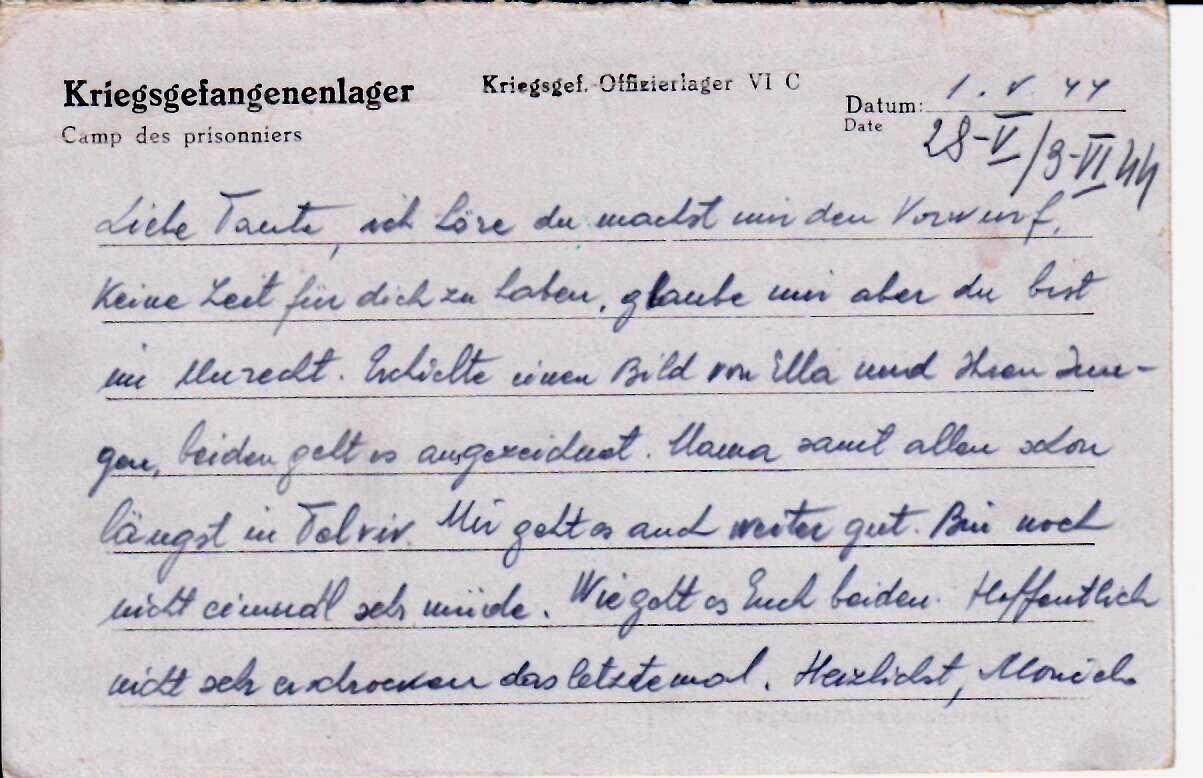 Kriegsgefangenenlager
Camp des prisonniers
Kriegsgef. Offizierlager VI C
Datum: 1. V. 44
Date
28-V/3-VI 44
Liebe Tante, ich höre du machst mir den Vorwurf,
keine Zeit für dich zu haben, glaube mir aber du bist
im Unrecht. Erhielte einen Bild von Ella und Ihren Jun-
gen, beiden geht es ausgezeichnet. Mama samt allen schon
längst in Telviv. Mir geht es auch weiter gut. Bin noch
nicht einmal sehr müde. Wie geht es Euch beiden. Hoffentlich
nicht sehr erschrocken das letztemal. Herzlichst,